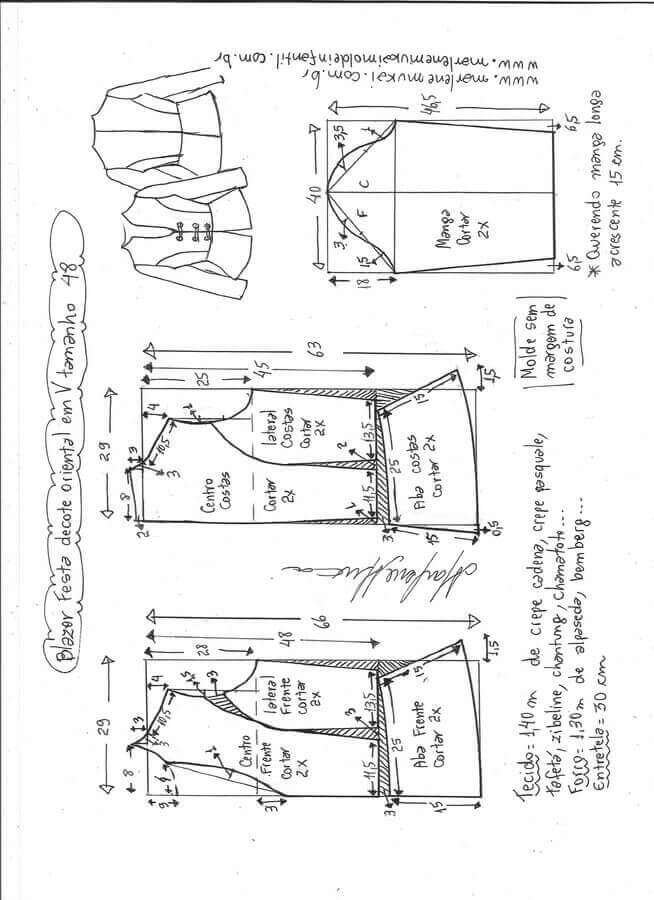 Blazer Festa decote oriental em V tamanho 48
www.marlenemukai.com.br
www.marlenemukaimoldeinfantil.com.br
29
8
3
4
10,5
3
9
28
48
66
Centro
Frente
cortar
2x
lateral
Frente
cortar
2x
3
3
11,5
13,5
3
25
15
15
1,5
Aba Frente
cortar 2x
29
2
8
3
4
10,5
3
25
45
63
Centro
Costas
Cortar
2x
lateral
Costas
Cortar
2x
2
11,5
13,5
3
25
15
15
1,5
0,5
Aba costas
cortar 2x
Marlene Mukai
40
46,5
18
3
3,5
1,5
1
F
C
Manga
Cortar
2x
6,5
6,5
* Querendo manga longa
acrescente 15 cm.
Molde sem
margem de
costura
Tecido = 1,40 m de crepe cadena, crepe pasquale,
tafetá, zibeline, chantung, chamatoto...
Forro = 1,30 m de alpaseda, bemberg...
Entretela = 30 cm